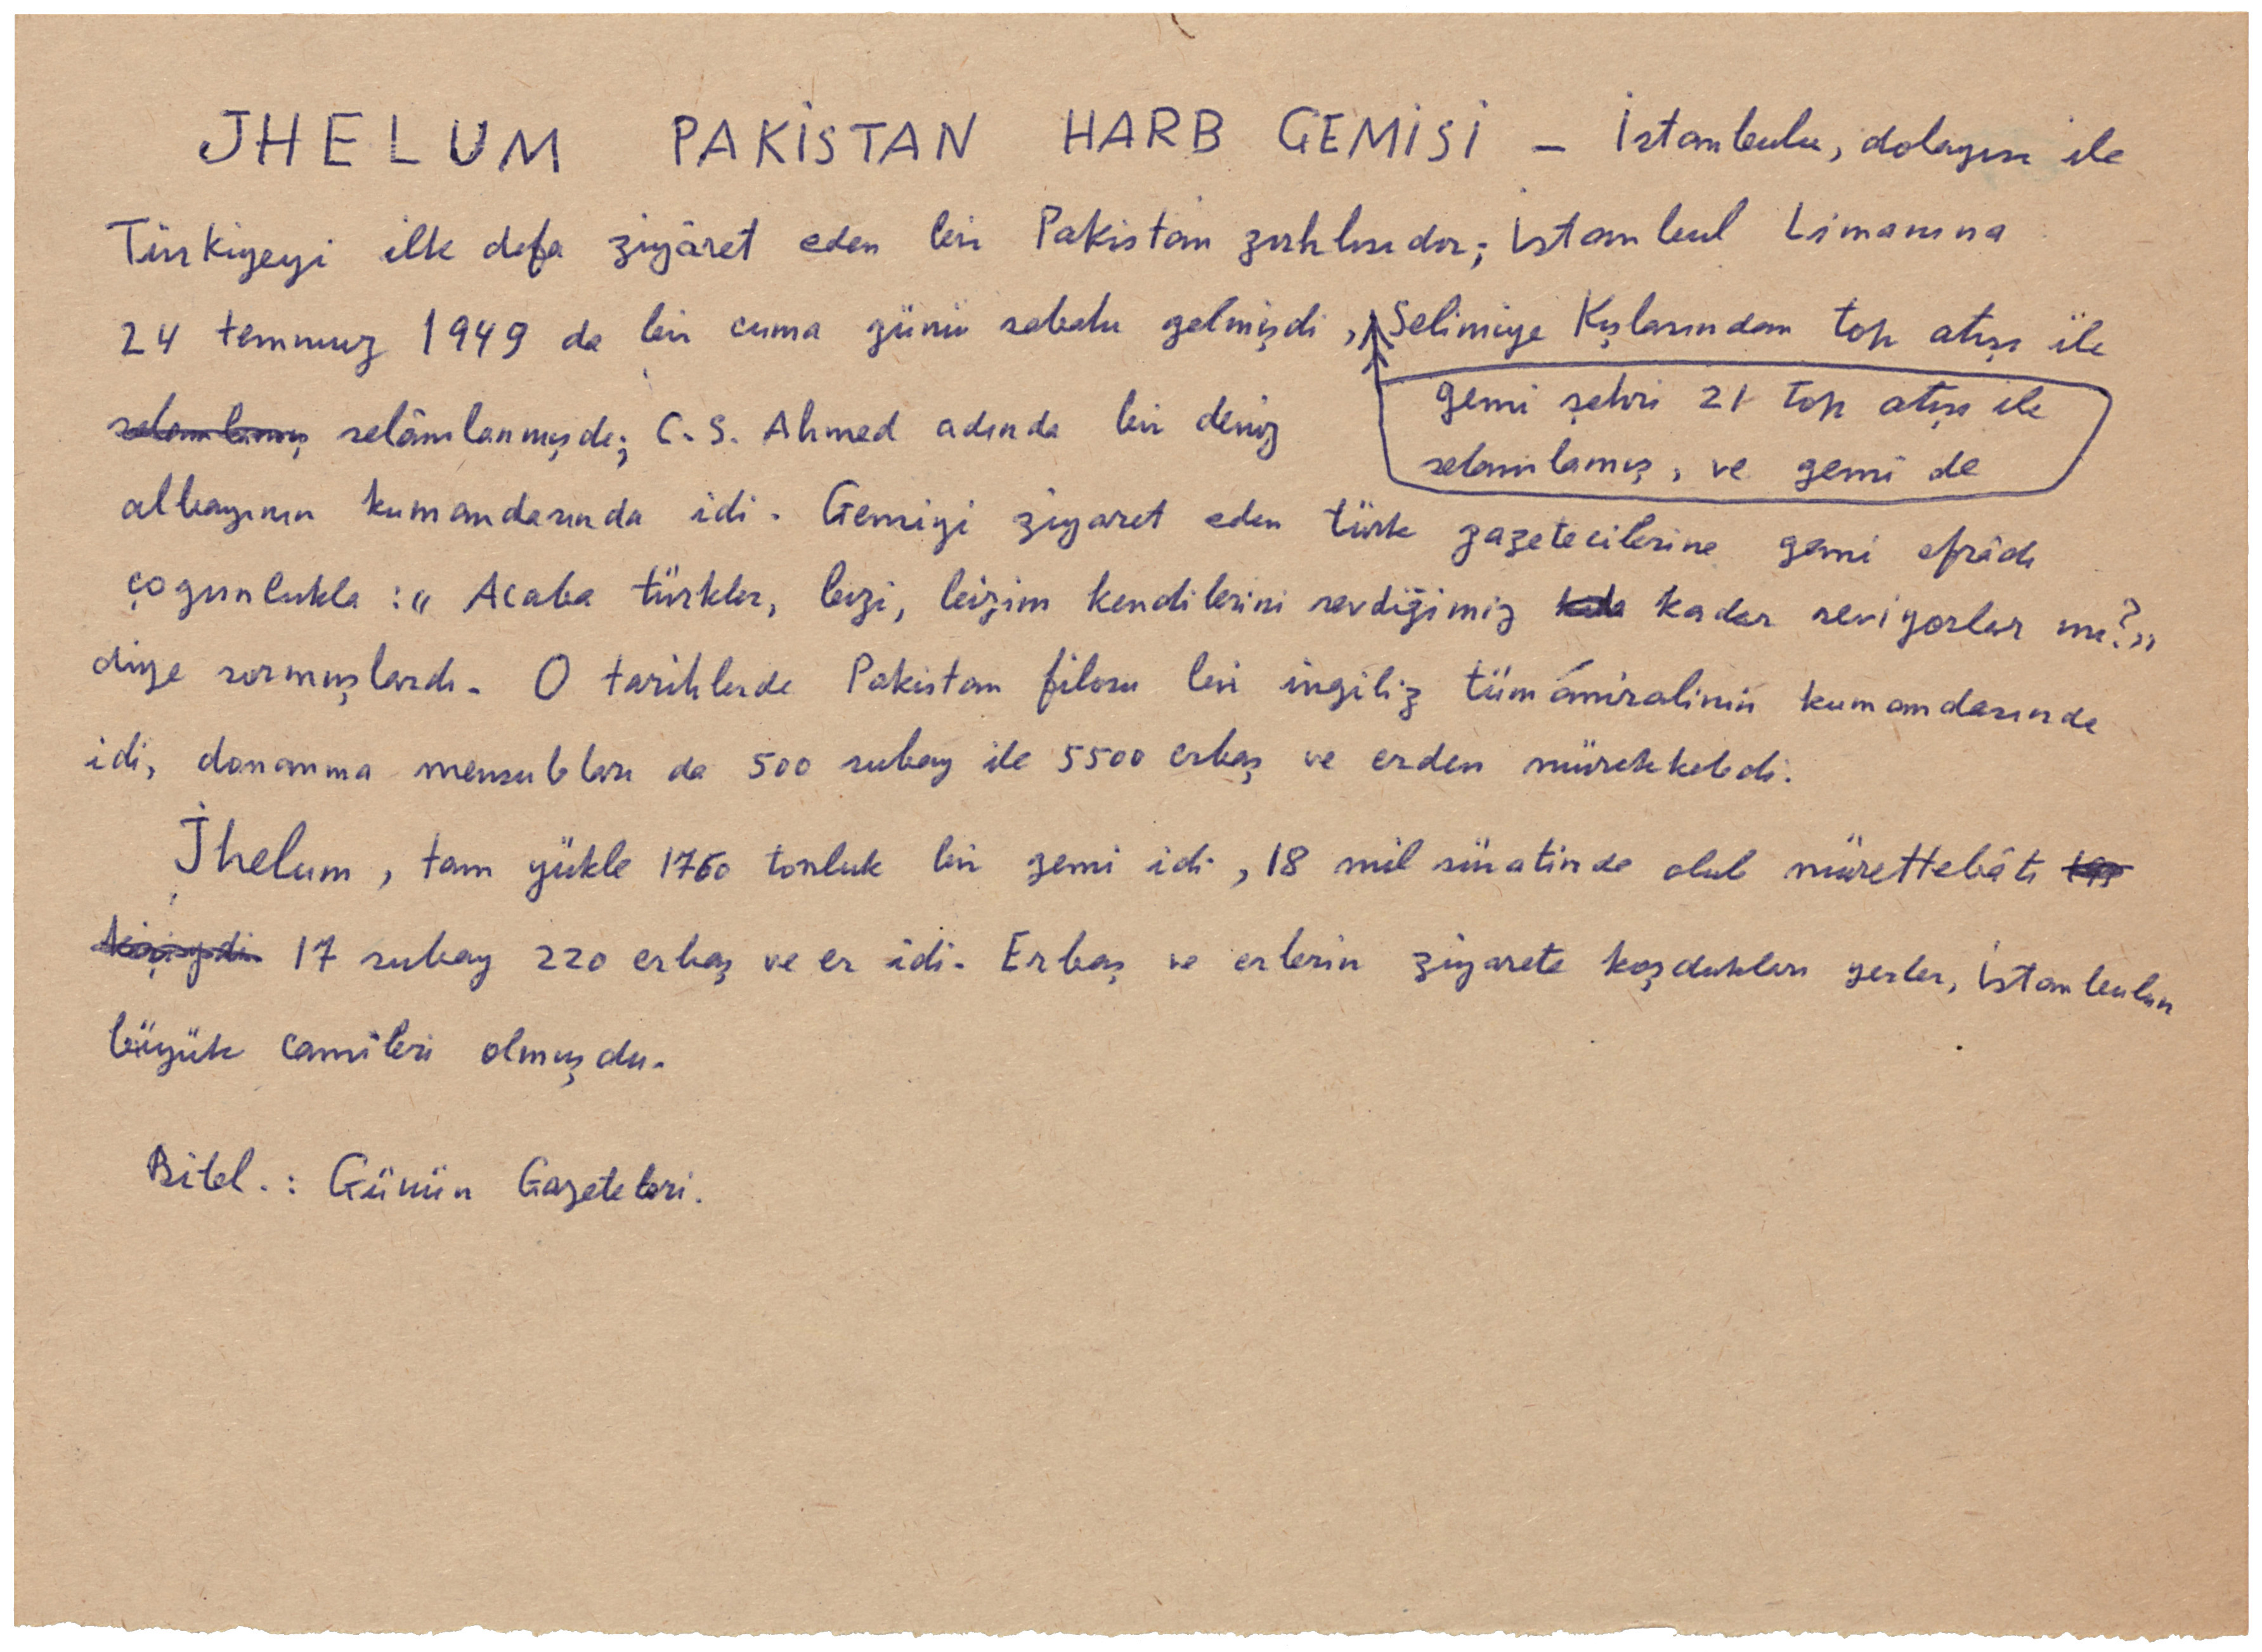 JHELUM PAKİSTAN HARB GEMİSİ – İstanbulu, dolayısı ile
Türkiyeyi ilk defa ziyâret eden bir Pakistan zırhlısıdır; İstanbul Limanına
24 temmuz 1949 da bir cuma günü sabahı gelmişdi, Selimiye Kışlasından top atışı ile
gemi şehri 21 top atışı ile
selamlamış, ve gemi de
selamlamış selâmlanmışdı; C. S. Ahmed adında bir deniz
albayının kumandasında idi. Gemiyi ziyaret eden türk gazetecilerine gemi efrâdı
çogunlukla : „ Acaba türkler, bizi, bizim kendilerini sevdiğimiz kada kadar seviyorlar mı? „
diye sormuşlardı. O tarihlerde Pakistan filosu bir ingiliz tümâmiralinin kumandasında
idi, donanma mensubları da 500 subay ile 5500 erbaş ve erden mürekkebdi.
Jhelum, tam yükle 1760 tonluk bir gemi idi, 18 mil süratinde olub mürettebâtı
kişiydi 17 subay 220 erbaş ve er idi. Erbaş ve erlerin ziyarete koşdukları yerler, İstanbulun
büyük camileri olmuşdu.
Bibl. : Günün Gazeteleri.